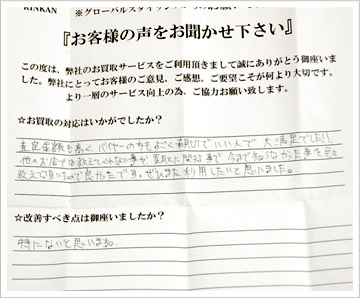 RINKAN
※グローバルスタイリッシュ
『お客様の声をお聞かせ下さい』
この度は、弊社のお買取サービスをご利用頂きまして誠にありがとう御座いま
した。弊社にとってお客様のご意見、ご感想、ご要望こそが何より大切です。
より一層のサービス向上の為、ご協力お願い致します。
☆お買取の対応はいかがでしたか?
査定金額も高く、バイヤーのかたもすごく親切でいい人で大満足でした!
他のお店では教えてくれない事や買取に関する事で今まで知らなかった事を色々
教えて頂いたので良かったです。ぜひまた利用したいと思いました。
☆改善すべき点は御座いましたか?
特にないと思います。